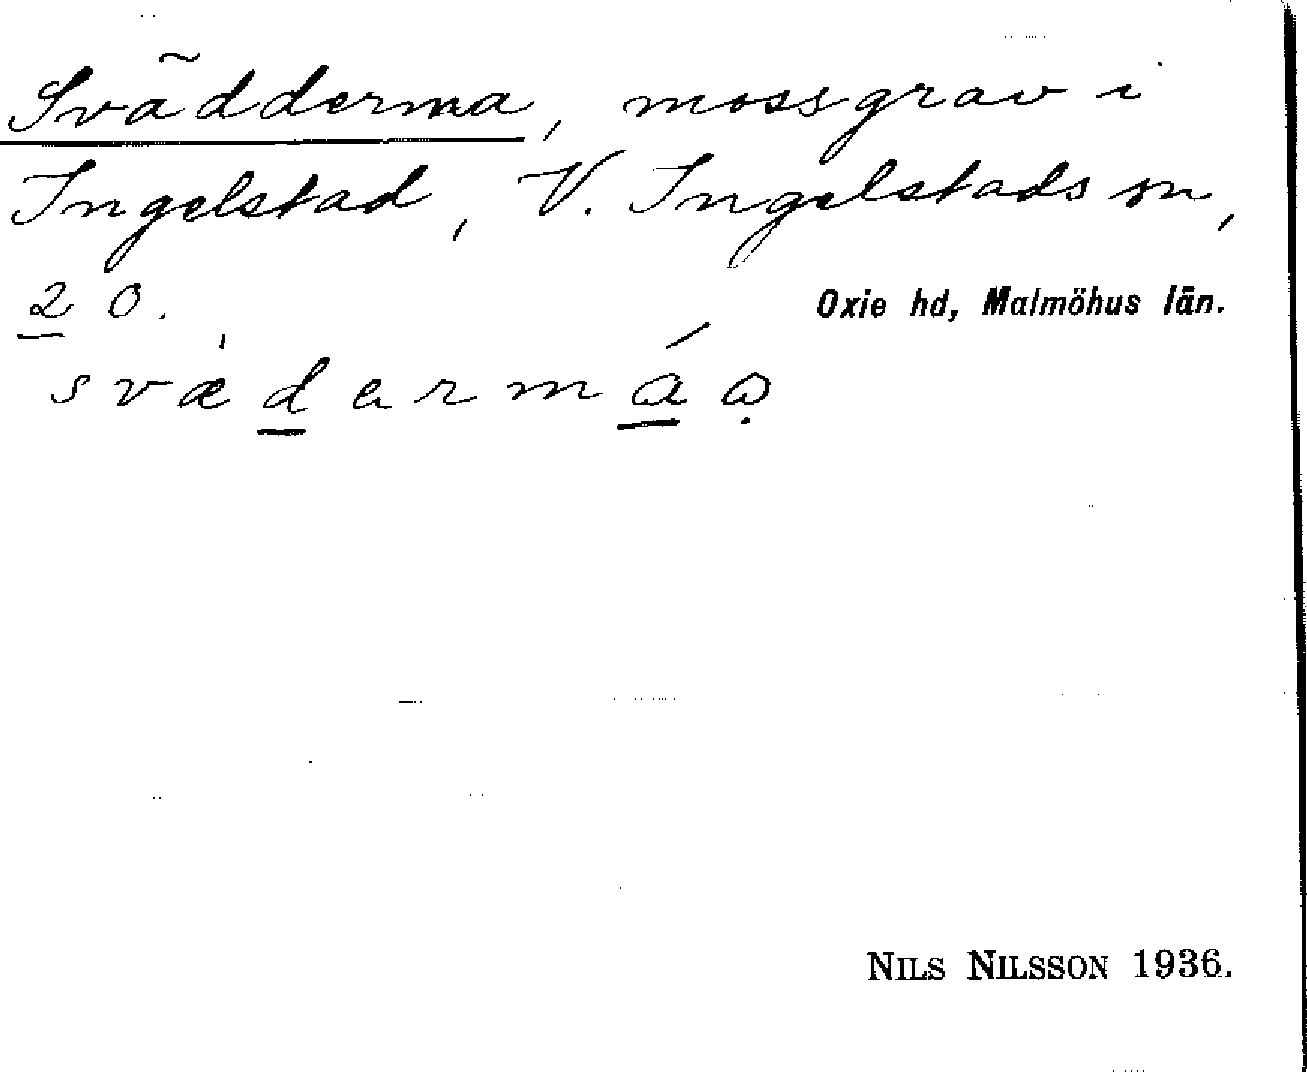 Svädderma, mossgrav i
Ingelstad, V. Ingelstads sn,
20. Oxie hd, Malmöhus län.
svædarmáo̤
NILS NILSSON 1936.